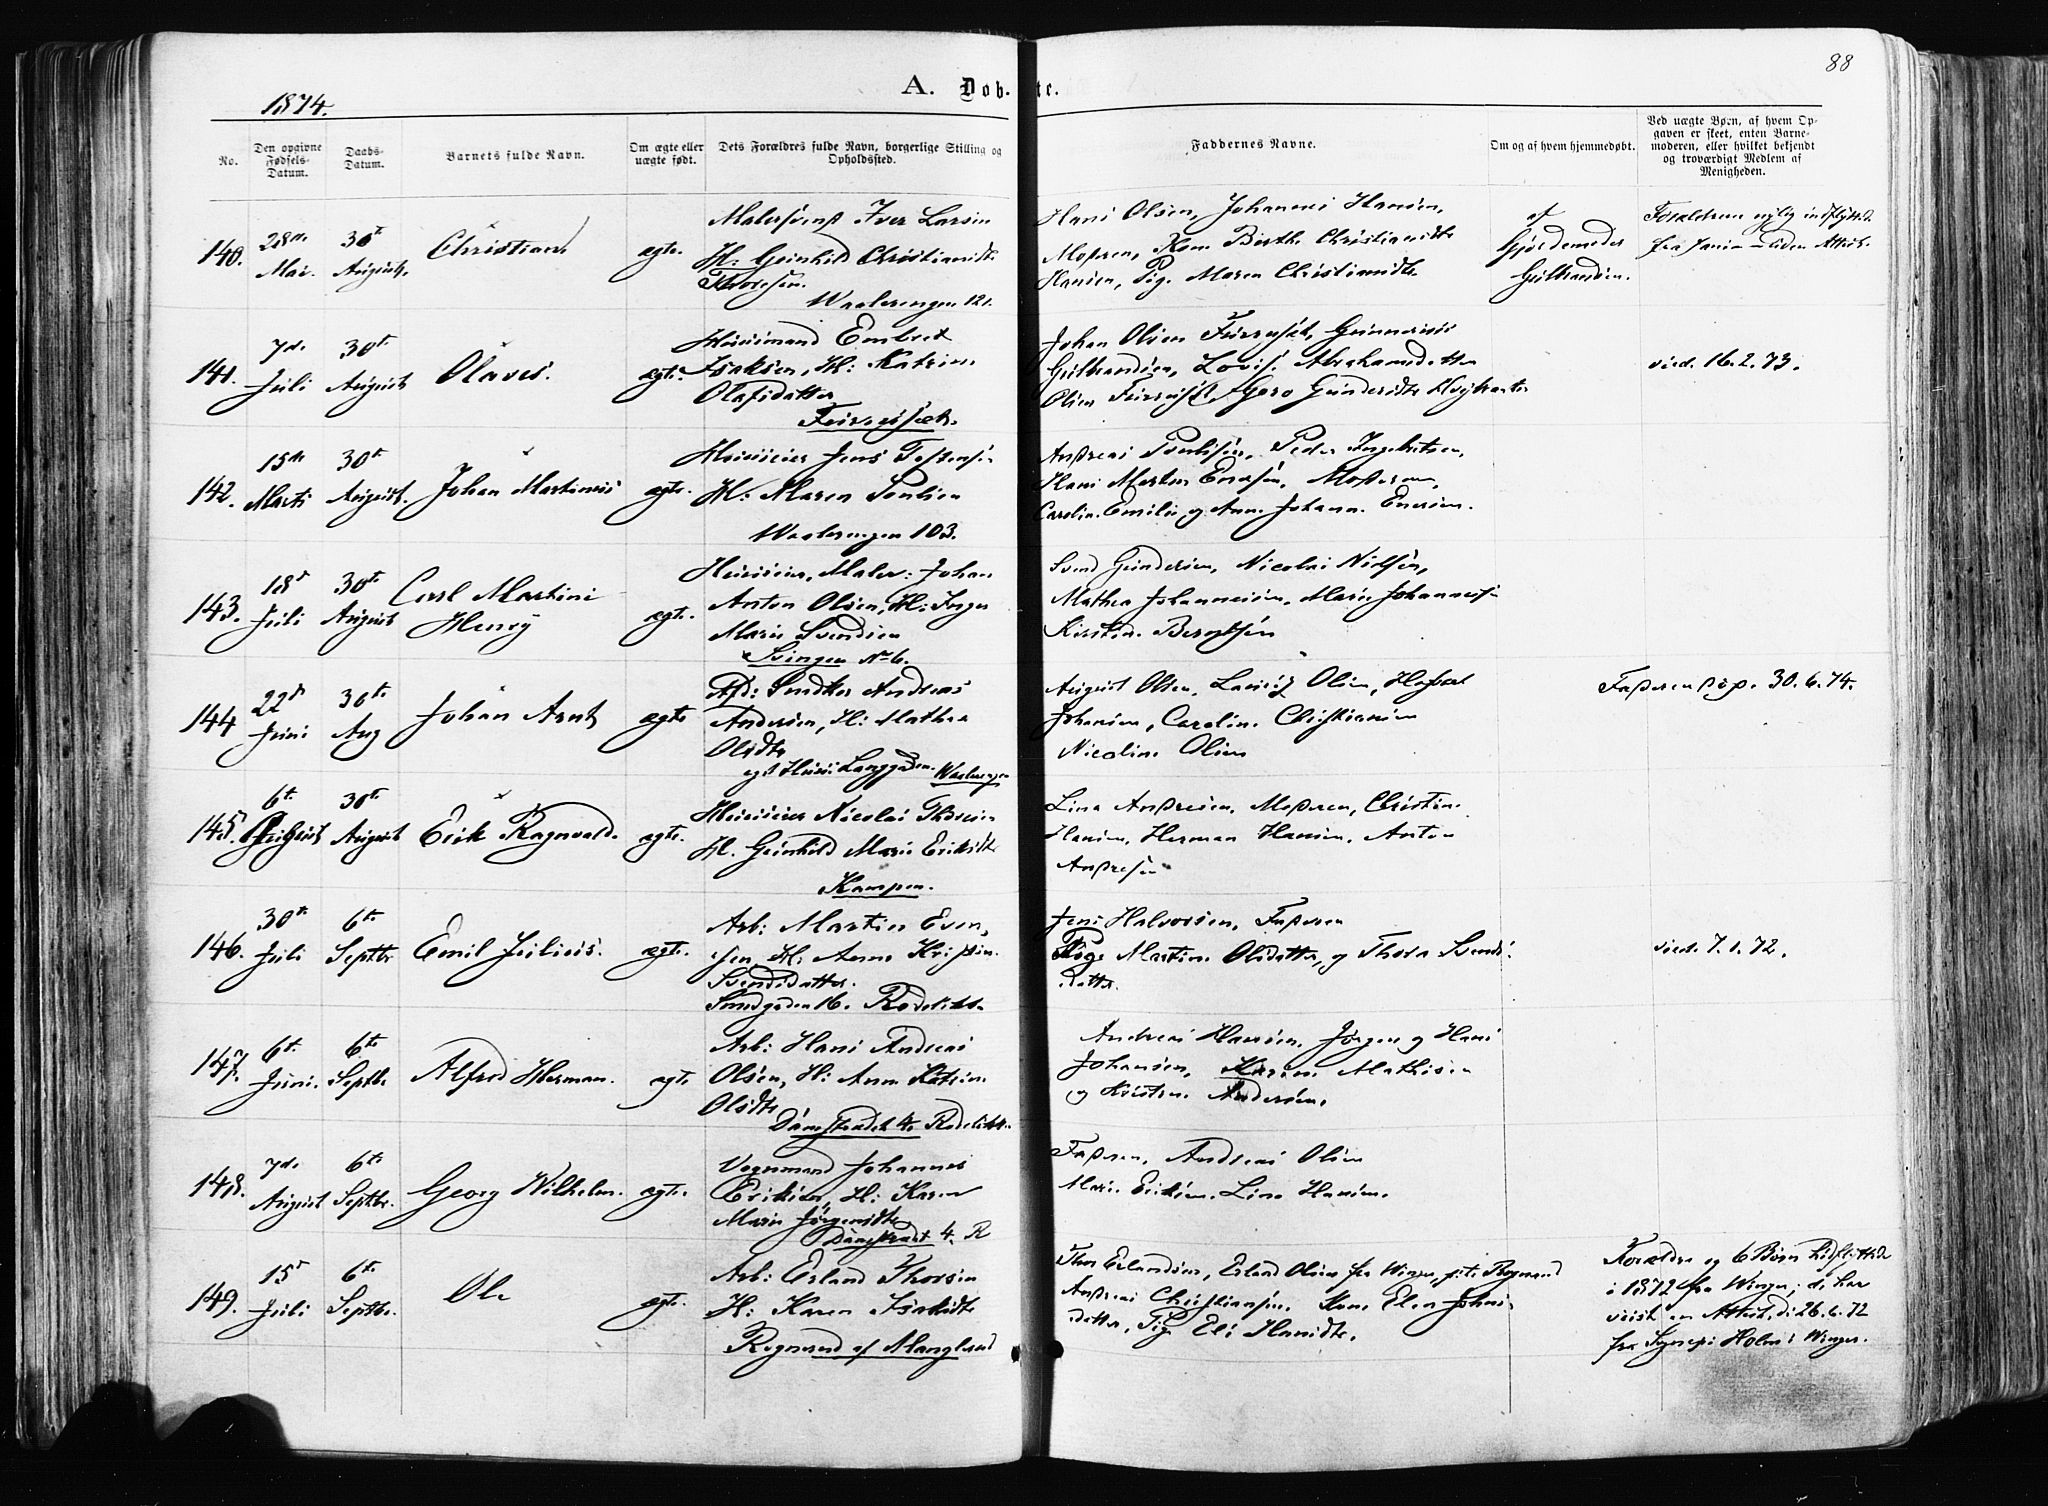 88
1874.
A. Døb-te.
No.
Den opgivne Fødsels-Datum.
Daabs-Datum.
Barnets fulde Navn.
Om ægte eller uægte født.
Dets Forældres fulde Navn, borgerlige Stilling og Opholdssted.
Faddernes Navne.
Om og af hvem hjemmedøbt.
Ved uægte Børn, af hvem Opgaven er skeet, enten Barnemoderen, eller hvilket bekjendt og troværdigt Medlem af Menigheden.
140. 28de Mai. 30te August. Christian ægte.
Malersvend Iver Larsen
H: Gunhild Christiansdtr
Thoresen.
Waalerengen 121.
Hans Olsen, Johannes Hansen,
Moderen, Kone Berthe Christiansdtr
Hansen, Pig. Maren Christiansdtr
af
Gjordemoder
Gulbrandsen.
Forældrene nylig indflyttet
141. 7de Juli 30te August Olaves. ægte.
Huusmand Embret
Isaksen, H: Katrine
Olafsdatter
Johan Olsen
Gulbrandsen, Lovise Abrahamsdatter
Olsen
vied. 16.2.73.
142. 15de Marts 30te August. Johan Martinus ægte.
Huuseier Jens
H: Maren Poulsen
Waalerengen 103.
Andreas Poulsen, Peder Ingebretsen,
Hans Martin Enersen, Moderen,
Caroline Emilie og Anne Johanne Enersen.
143. 18de Juli 30te August Carl Martini
Henry ægte.
Huuseier, Maler: Johan
Anton Olsen, H: Inger
Marie Svendsen
Svingen No 6.
Svend Gundersen, Nicolai Nielsen,
Mathea Johannesen, Marie Johannesen
Kirstine Berntsen
144 22de Juni 30te Aug Johan Arnt ægte
Afd: Snedker Andreas
Andersen, H: Mathea
Olsdtr
eget Huus: Langgaden. Waalerengen
August Olsen, Lauritz Olsen,
Johansen, Caroline Christiansen
Nicoline Olsen
Faderen død. 30.6.74.
145. 6te August 30te August Erik Ragnvald. ægte.
Huuseier Nicolai Thorsen
H. Gunhild Marie Eriksdtr
Kampen.
Lina Andresen, Moderen, Christine
Hansen, Herman Hansen, Anton
Andresen
146. 30te Juli 6te Septbr. Emil Julius. ægte.
Arb: Martin Even-
sen, H: Anne Kristine
Svendsdatter.
Smedgaden 16. Rodeløkken
Jens Halvorsen, Faderen
Pige Martine Olsdatter, og Thora Svends-
datter.
vied. 7.1.72.
147. 6te Juni. 6te Septbr Alfred Herman. ægte
Arb: Hans Andreas
Olsen, H: Anne Katrine
Olsdtr
Damstrædet 4. Rodeløkken
Andreas Hansen, Jørgen og Hans
Johansen, Karen Mathisen
og Kristine Andersen.
148. 7de August 6te Septbr. Georg Wilhelm. ægte.
Vognmand Johannes
Eriksen, H: Karen
Marie Jørgensdtr
Damstrædet 4. R
Faderen, Andreas Olsen
Marie Eriksen. Lina Hansen.
149. 15de Juli 6te Septbr. Ole ægte.
Arb: Erland Thorsen
H: Karen Isaksdtr
Rognerud af Manglerud
Thor Erlandsen, Erland Olsen fra Winger, Rognerud
Andreas Christiansen. Kone Elen Johns-
datter, Pig. Eli Hansdtr.
Forældre og 6 Børn hidflyttede
i 1872 fra Winger; de har
viist en Attest, d: 26.6.72
fra Sognepr Holm i Winger.